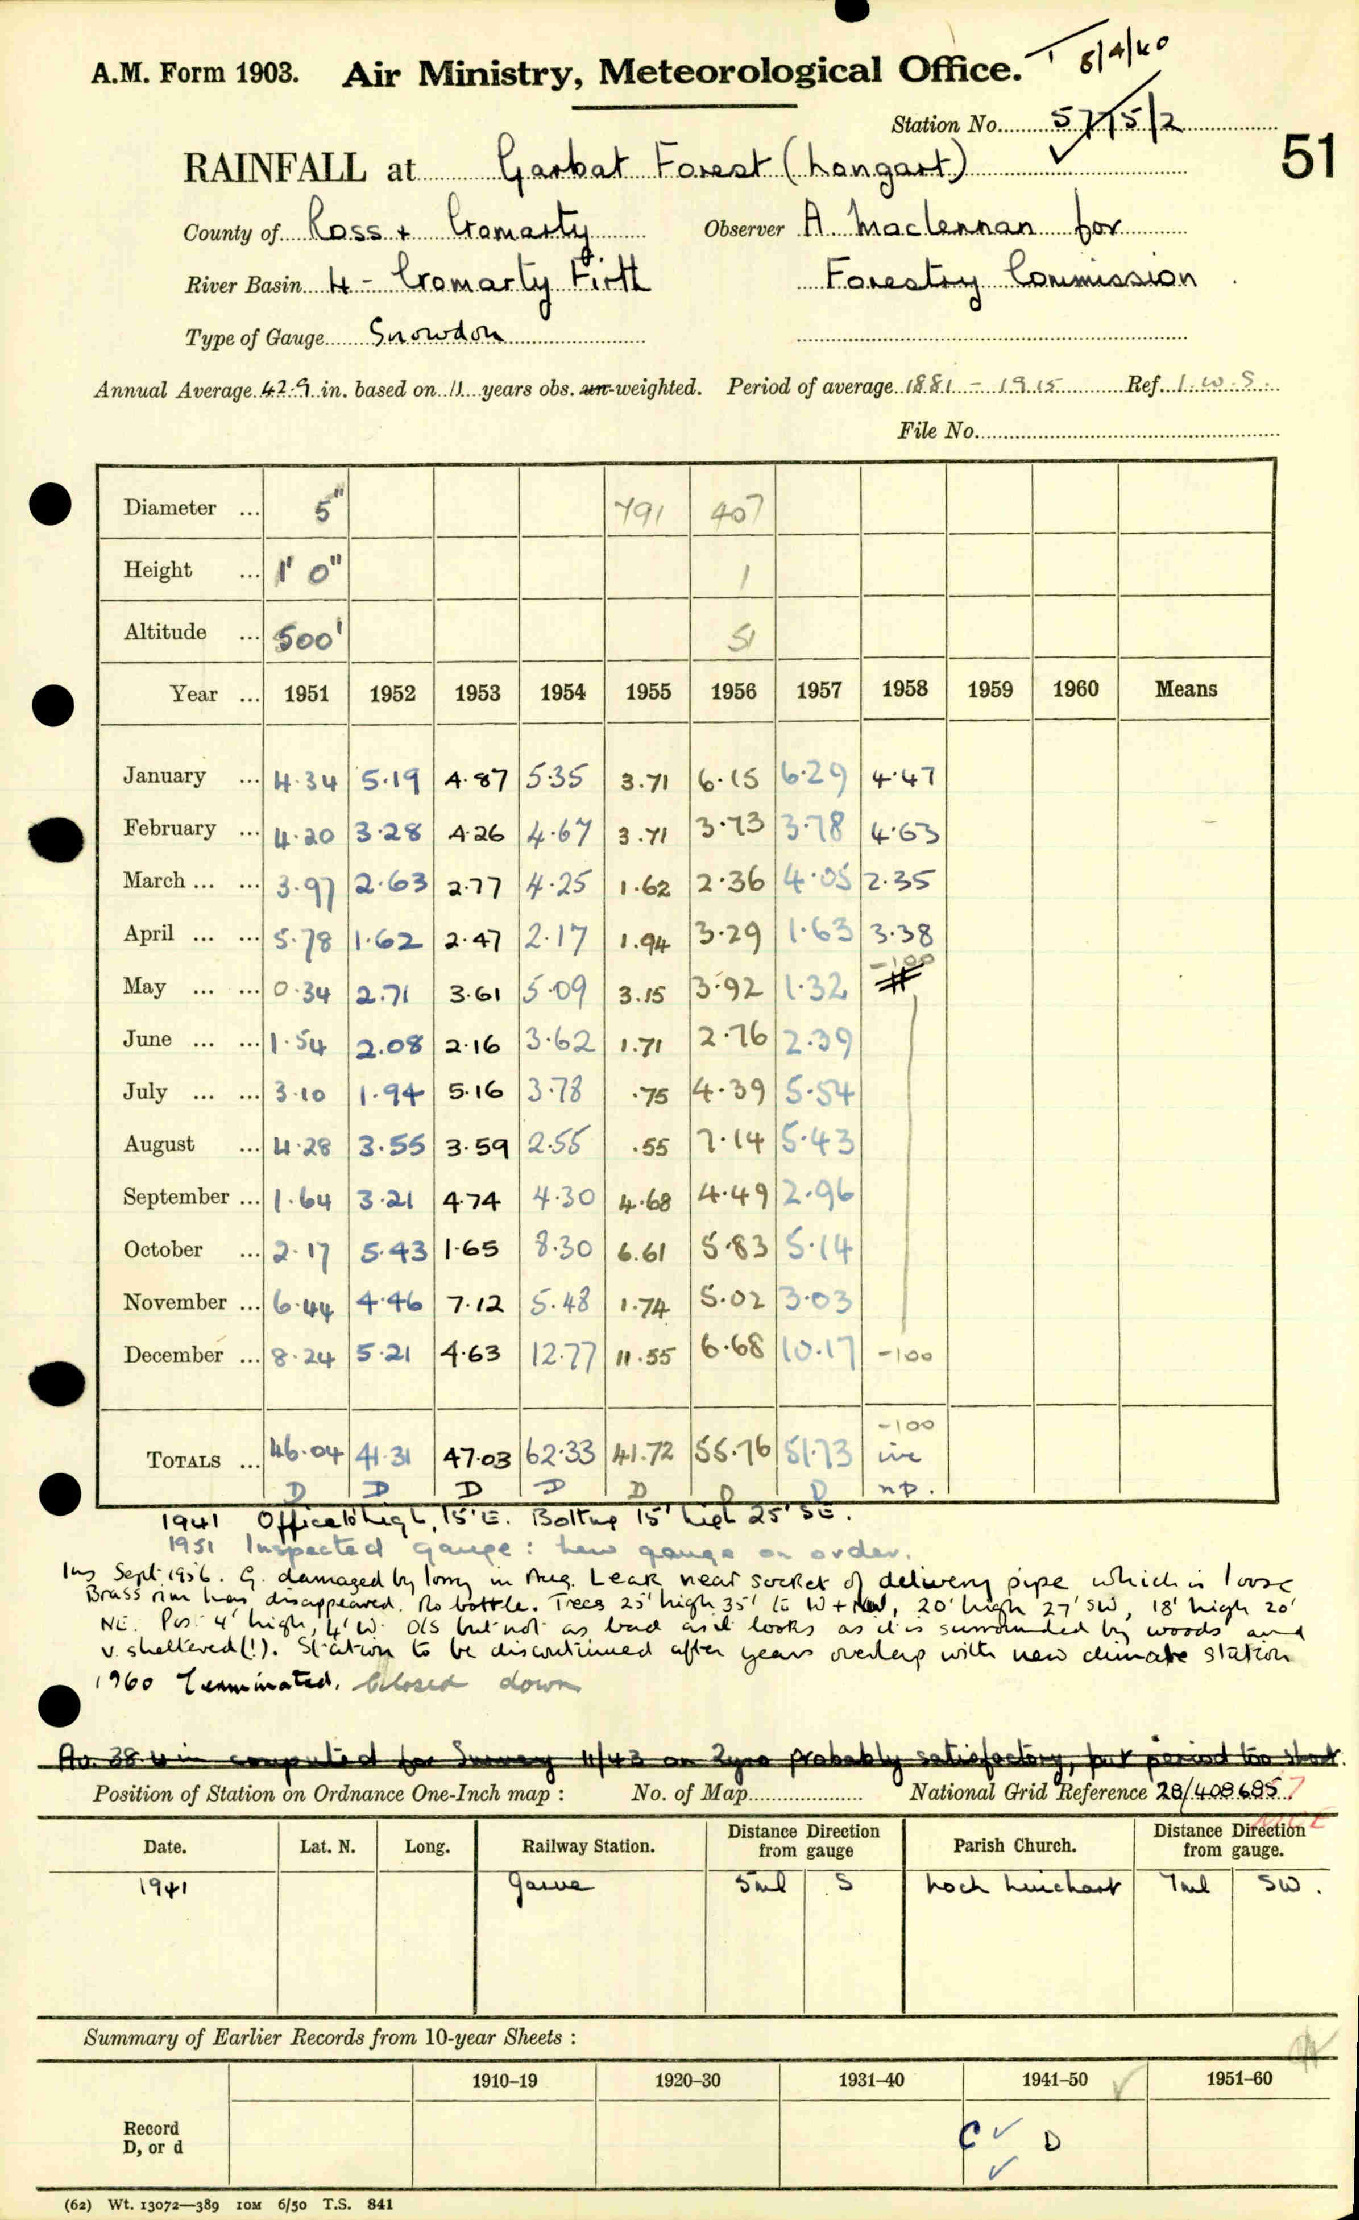 A.M. Form 1903. Air Ministry, Meteorological Office. 8/4/40
Station No. 5775/2
51
RAINFALL at Garbat Forest (Longart)
County of Ross + Cromarty Observer A. Maclennan for
River Basin 4 - Cromarty Firth Forestry Commission
Type of Gauge Snowdon
Annual Average 42.9 in. based on 11 years obs. un-weighted. Period of average 1881 - 1915 Ref. I.W.S.
File No.
Diameter ... 5" 791 407
Height ... 1' 0" 1
Altitude ... 500' 51
Year ... 1951 1952 1953 1954 1955 1956 1957 1958 1959 1960 Means
January ... 4.34 5.19 4.87 5.35 3.71 6.15 6.29 4.47
February ... 4.20 3.28 4.26 4.67 3.71 3.73 3.78 4.63
March ... ... 3.97 2.63 2.77 4.25 1.62 2.36 4.05 2.35
April ... ... 5.78 1.62 2.47 2.17 1.94 3.29 1.63 3.38
May ... ... 0.34 2.71 3.61 5.09 3.15 3.92 1.32 -100
June ... ... 1.54 2.08 2.16 3.62 1.71 2.76 2.39
July ... ... 3.10 1.94 5.16 3.78 .75 4.39 5.54
August ... 4.28 3.55 3.59 2.55 .55 7.14 5.43
September ... 1.64 3.21 4.74 4.30 4.68 4.49 2.96
October ... 2.17 5.43 1.65 8.30 6.61 5.83 5.14
November ... 6.44 4.46 7.12 5.48 1.74 5.02 3.03
December ... 8.24 5.21 4.63 12.77 11.55 6.68 10.17 -100
-100
TOTALS ... 46.04 41.31 47.03 62.33 41.72 55.76 51.73 ire
D D D D D D D n.p.
1941 Office 16' high, 15' E. Bothy 15' high 25' SE.
1951 Inspected gauge: new gauge on order.
Ins Sept 1956. G. damaged by lorry in Aug. Leak near socket of delivery pipe which is loose
Brass rim has disappeared. No bottle. Trees 25' high 35' to W + NW, 20' high 27' SW, 18' high 20'
NE. Pos. 4' high, 4' W. O/S but not as bad as it looks as it is surrounded by woods and
v. sheltered(!). Station to be discontinued after years overlap with new climate station
1960 Terminated. Closed down
Av. 38.4 in computed for Survey 11/43 on 2yrs probably satisfactory, but period too short.
Position of Station on Ordnance One-Inch map : No. of Map National Grid Reference 28/408685 7
Date. Lat. N. Long. Railway Station. Distance from gauge Direction Parish Church. Distance from gauge. Direction
1941 Garve 5ml S Loch Luichart 7ml SW.
Summary of Earlier Records from 10-year Sheets :
1910–19 1920–30 1931–40 1941–50 1951–60
Record
D, or d C D
(62) Wt. 13072—389 10M 6/50 T.S. 841